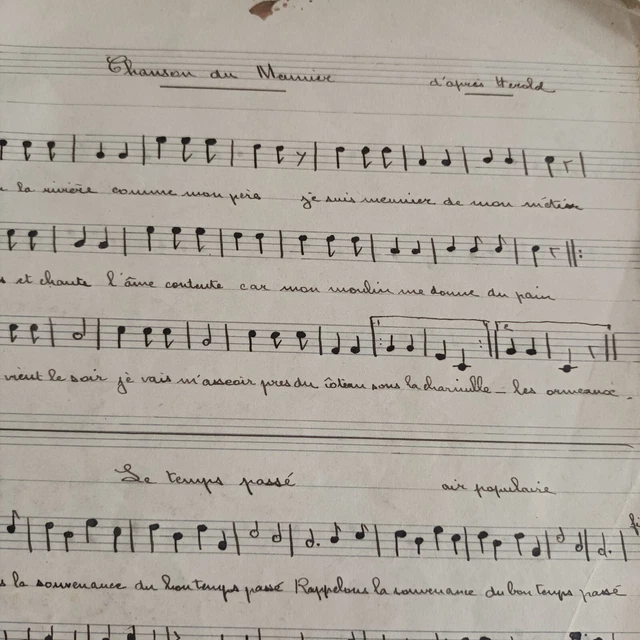 Chanson du Meunier d'après Herold
la rivière comme mon père je suis meunier de mon métier
et chante l'âme contente car mon moulin me donne du pain
vient le soir je vais m'asseoir pres du côteau sous la charmille - les ormeaux.
Le temps passé air populaire
la souvenance du bon temps passé Rappelons la souvenance du bon temps passé